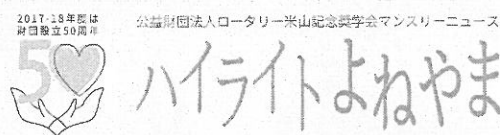 2017-18年度は
財団設立50周年
50
公益財団法人ロータリー米山記念奨学会マンスリーニュース
ハイライトよねやま